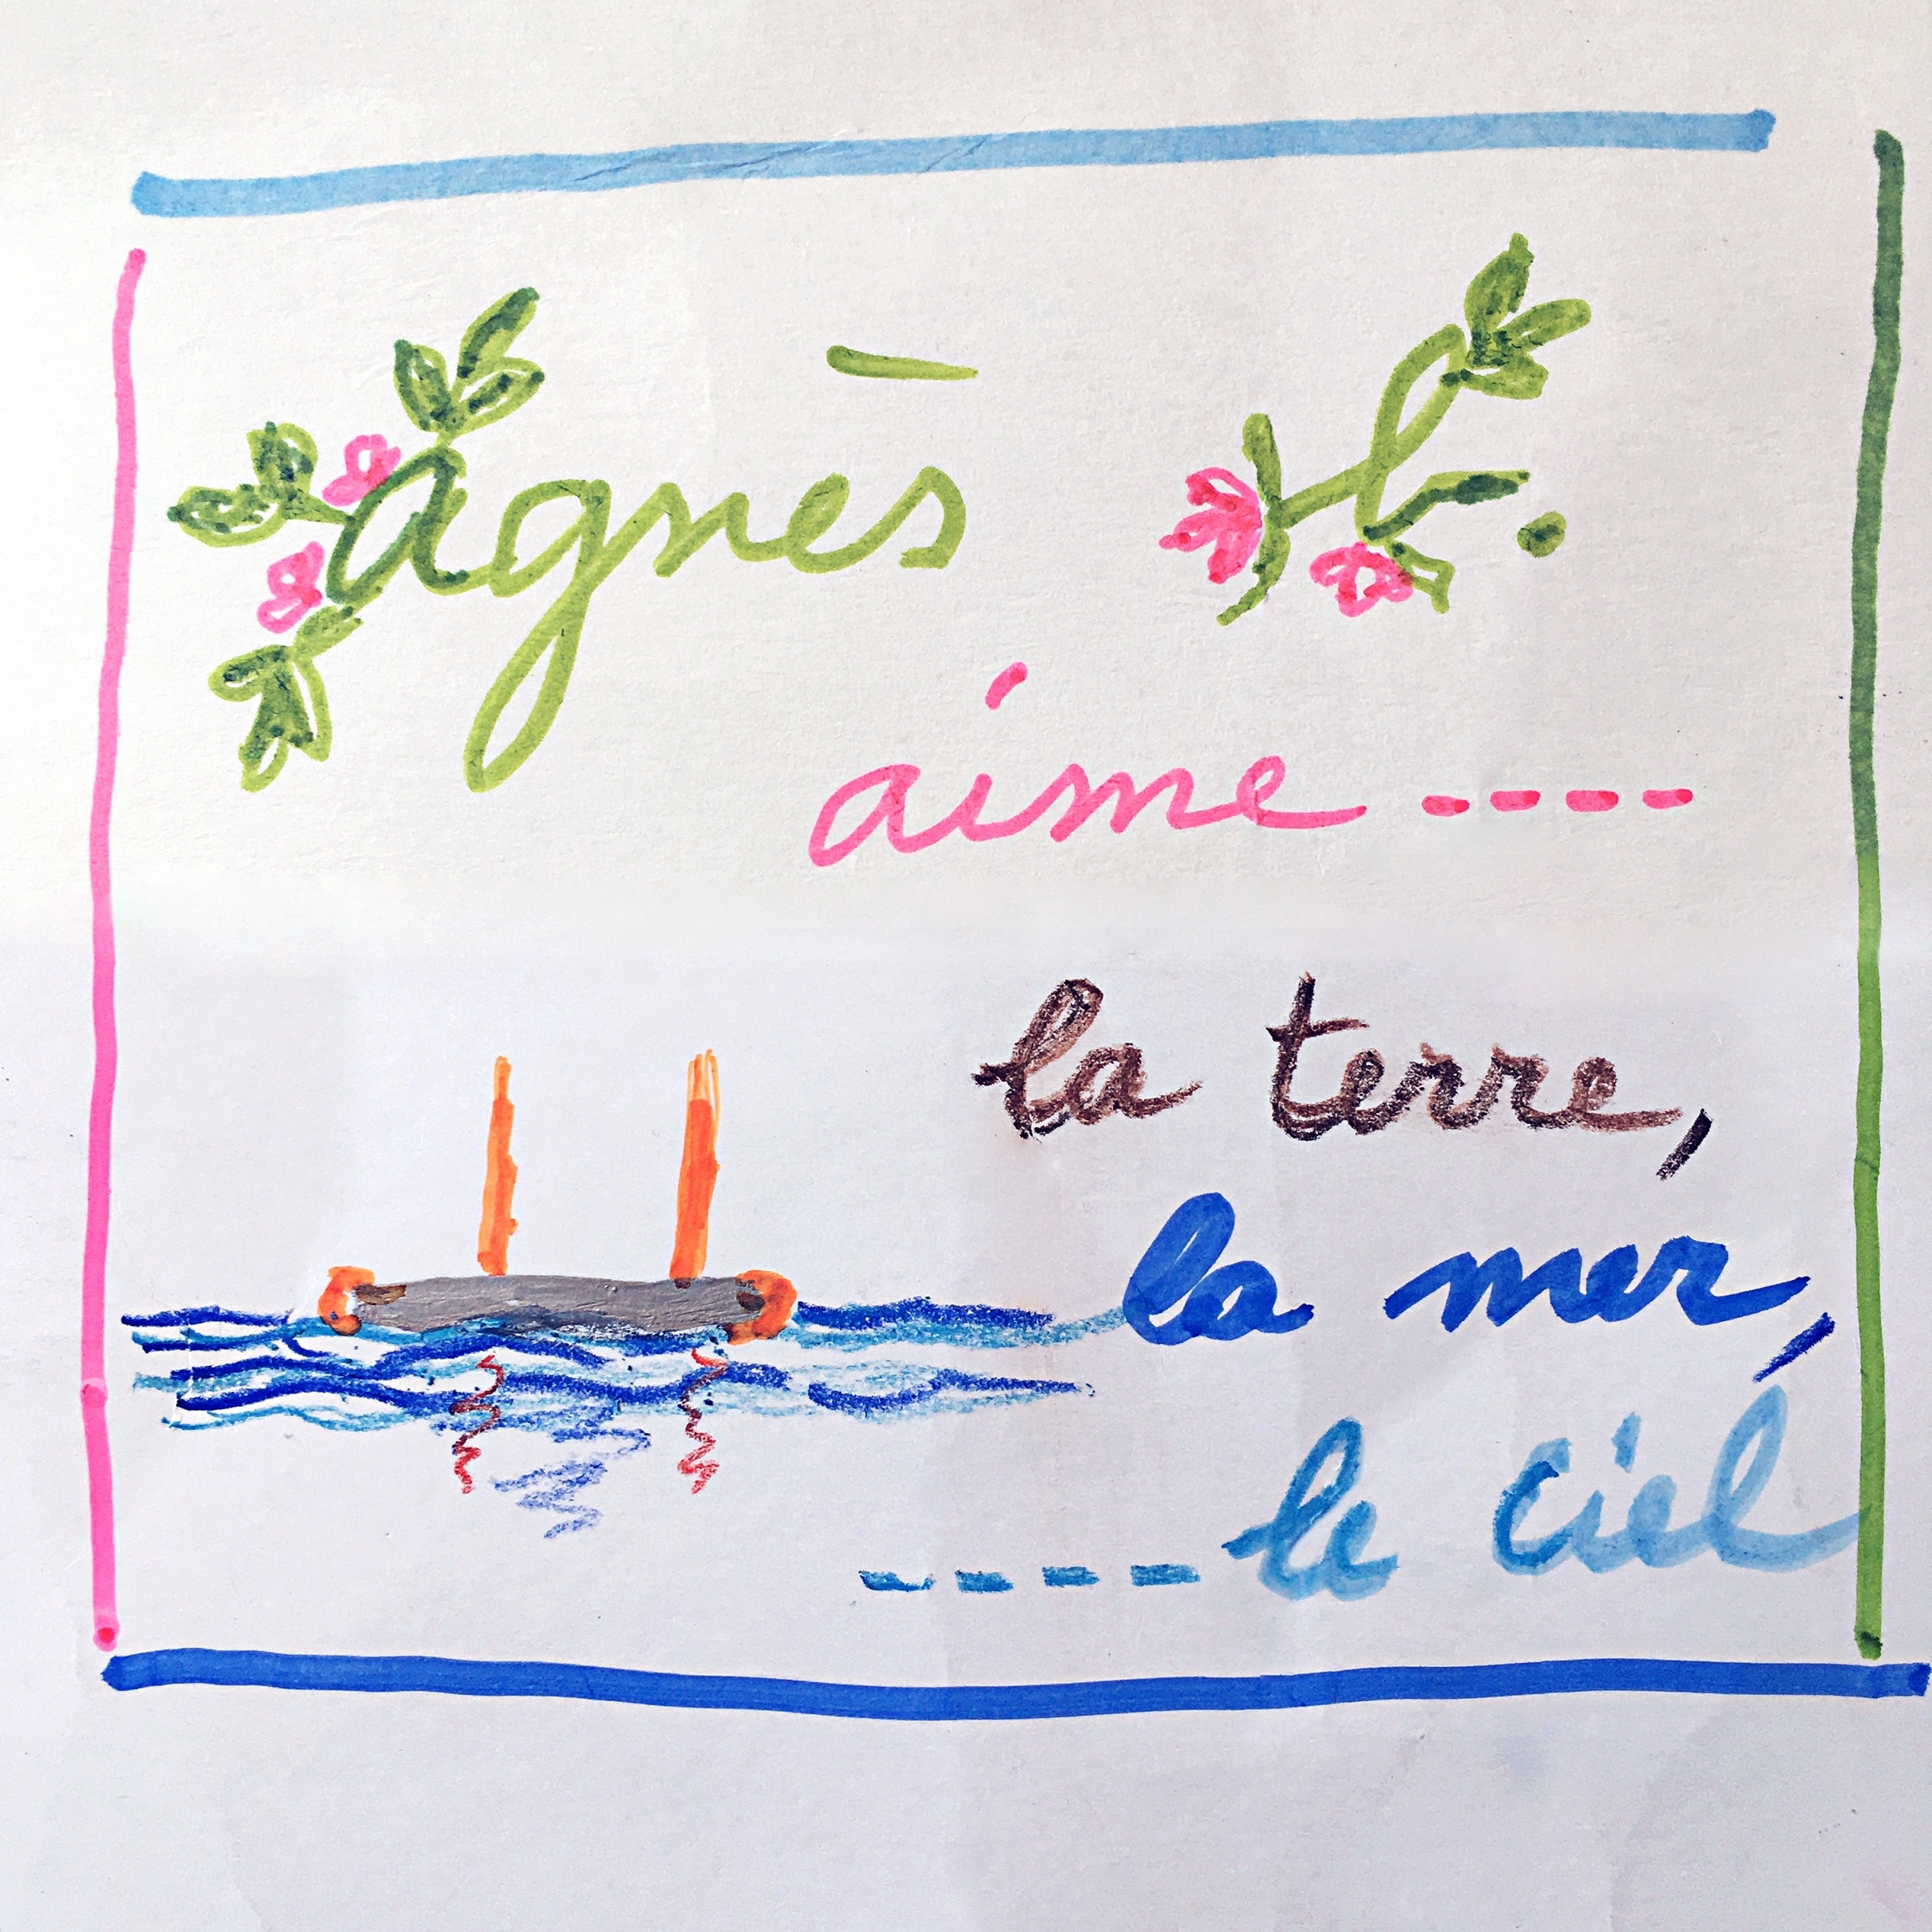 agnès b.
aime ----
la terre,
la mer,
---- le ciel